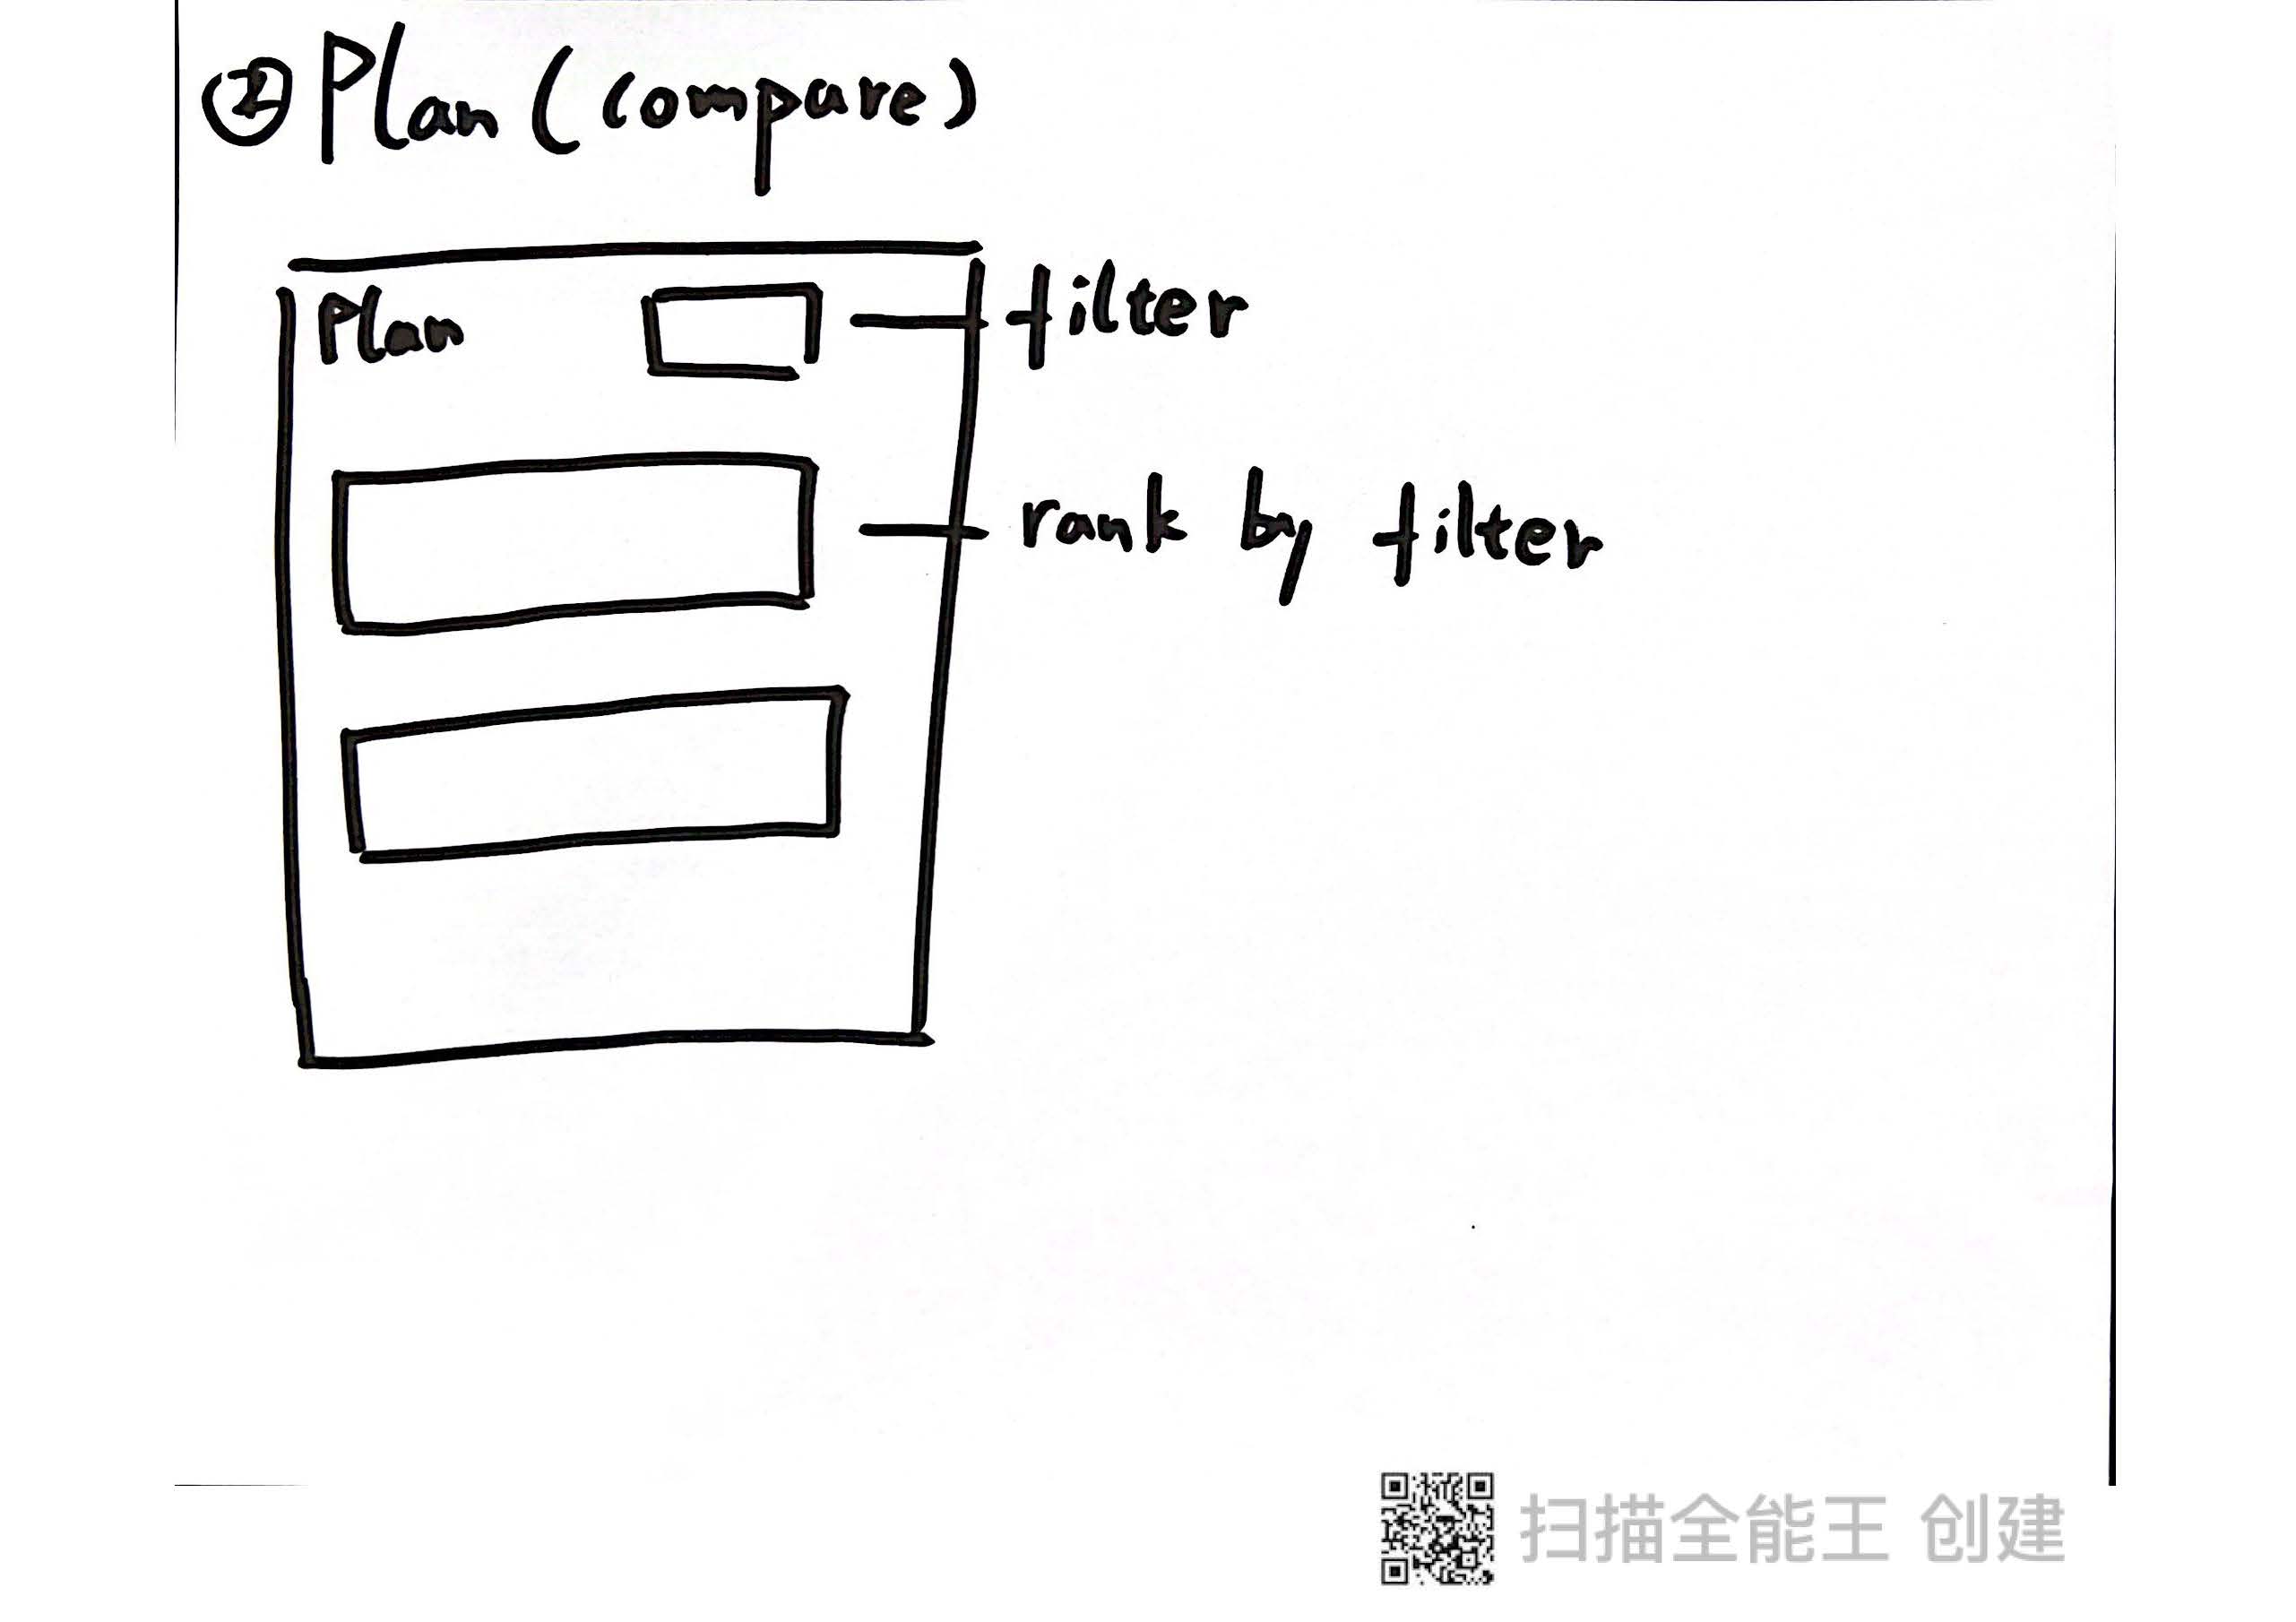 ② Plan (compare)
Plan
filter
rank by filter
扫描全能王 创建